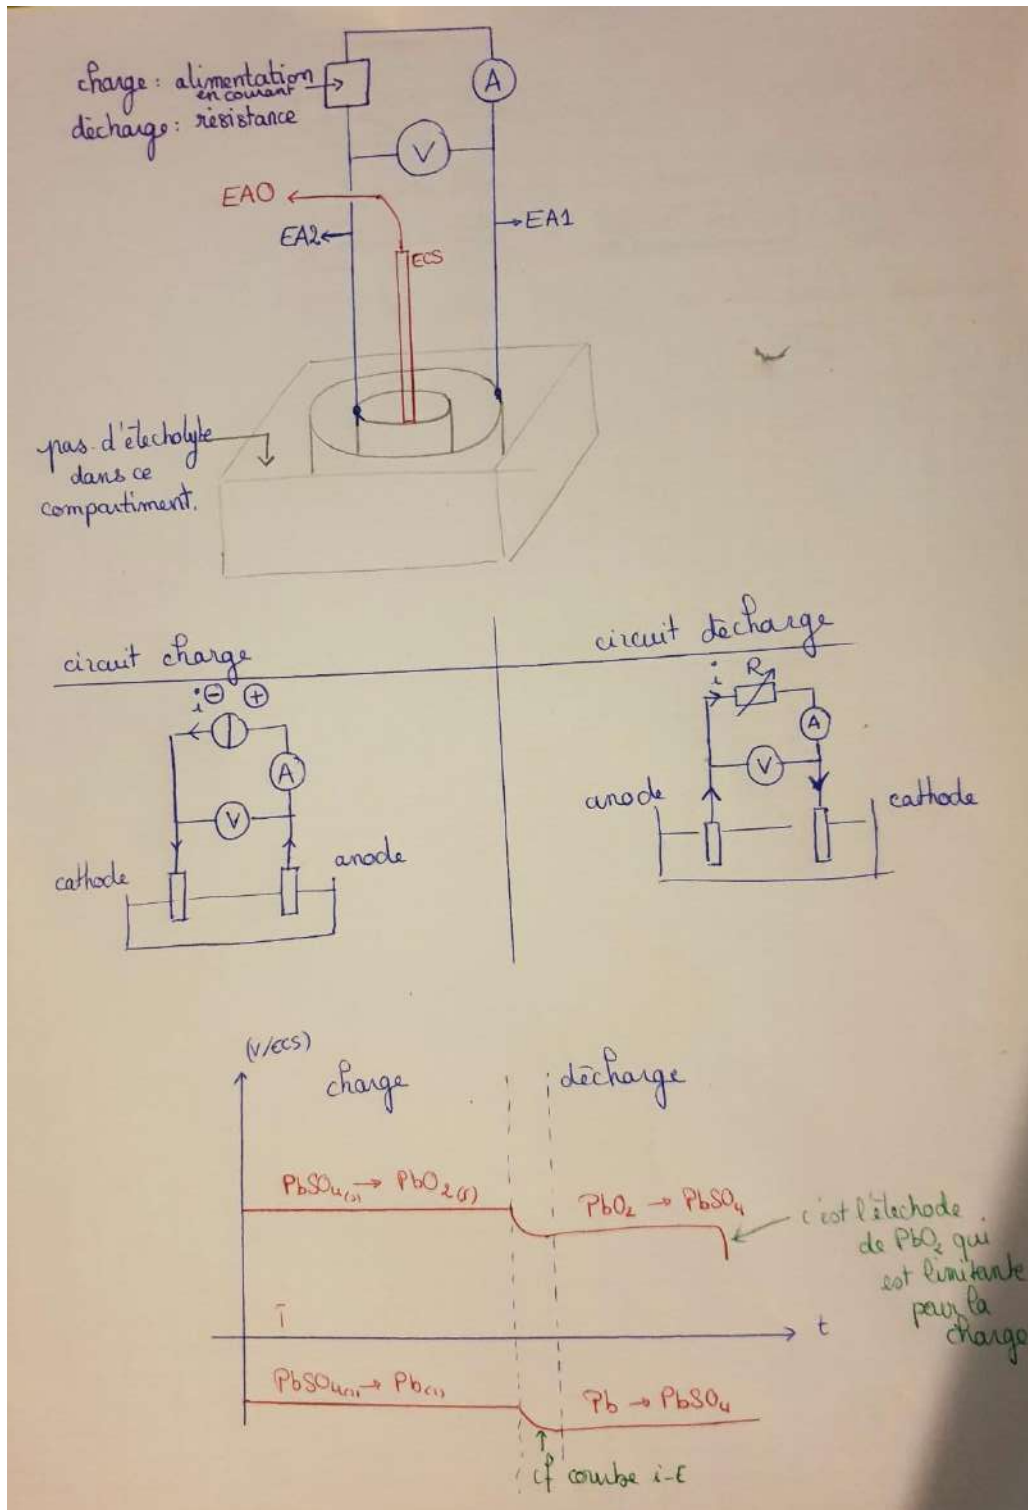 charge : alimentation
en courant
décharge : résistance
A
V
EA0
EA2
EA1
ECS
pas d'électrolyte
dans ce
compartiment.
circuit charge
circuit décharge
i ⊖ ⊕
A
V
cathode
anode
i
R
A
V
anode
cathode
(V/ECS)
charge
décharge
PbSO4(s) → PbO2(s)
PbO2 → PbSO4
c'est l'électrode
de PbO2 qui
est limitante
pour la
charge
t
PbSO4(s) → Pb(s)
Pb → PbSO4
cf courbe i-E